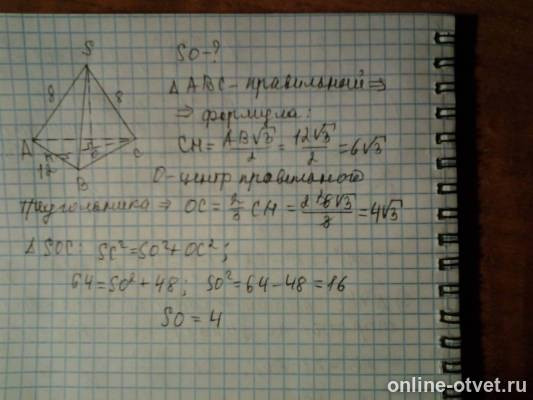 S
8
8
A
C
H
O
12
B
SO-?
△ABC - правильный ⇒
⇒ формула:
CH = AB√3/2 = 12√3/2 = 6√3
O-центр правильного
треугольника ⇒ OC = 2/3 CH = 2·6√3/3 = 4√3
△SOC: SC² = SO² + OC²;
64 = SO² + 48; SO² = 64 - 48 = 16
SO = 4
online-otvet.ru